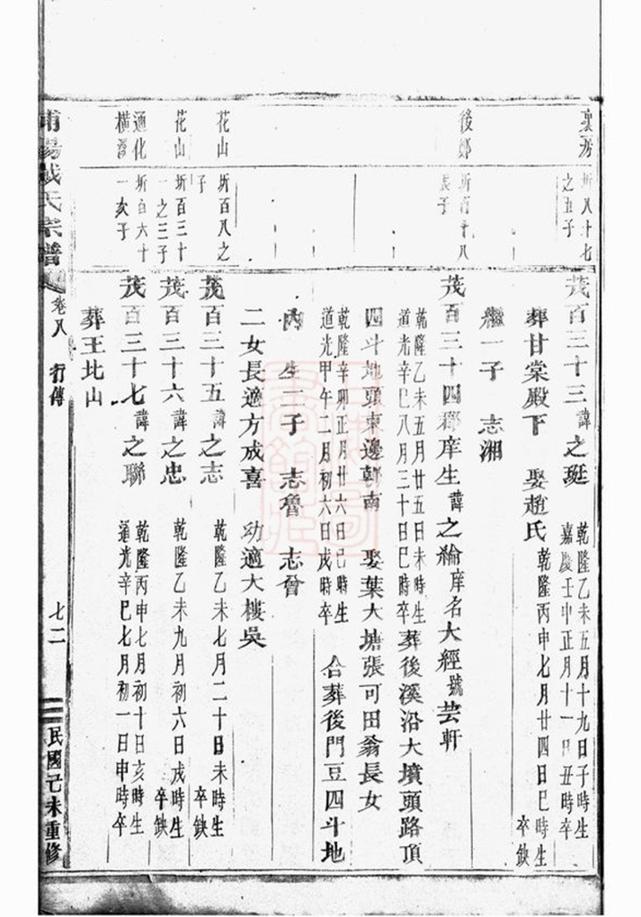 裏房
圻八十七
之五子
茂百三十三諱之珽
乾隆乙未五月十九日子時生
嘉慶壬申正月十一日丑時卒
葬甘棠殿下 娶趙氏
乾隆丙申七月廿四日巳時生
卒缺
繼一子 志湘
後鄭
圻百十八
長子
茂百三十四郡庠生諱之綸庠名大經號芸軒
乾隆乙未五月廿五日未時生
道光辛巳八月三十日巳時卒
葬後溪沿大墳頭路頂
四斗地頭東邊朝南 娶葉大塘張可田翁長女
乾隆辛卯正月廿六日巳時生
道光甲午二月初六日戌時卒
合葬後門豆四斗地
生二子 志魯 志晉
二女長適方成喜 幼適大樓吳
花山
圻百八之
子
茂百三十五諱之志
乾隆乙未七月二十日未時生
卒缺
花山
圻百三十
一之三子
茂百三十六諱之忠
乾隆乙未九月初六日戌時生
卒缺
通化
橫溪
圻百六十
一次子
茂百三十七諱之聯
乾隆丙申七月初十日亥時生
道光辛巳七月初一日申時卒
葬王北山
氏宗譜
卷八 行傳
七二
民國己未重修